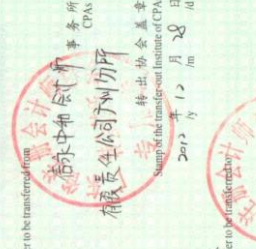 er to be transferred from
信永中和会计师 事务所
CPAs
有限责任公司广州分所
转出协会盖章
Stamp of the transfer-out Institute of CPA
2012 年 12 月 28 日
/y /m /d
er to be transferred to